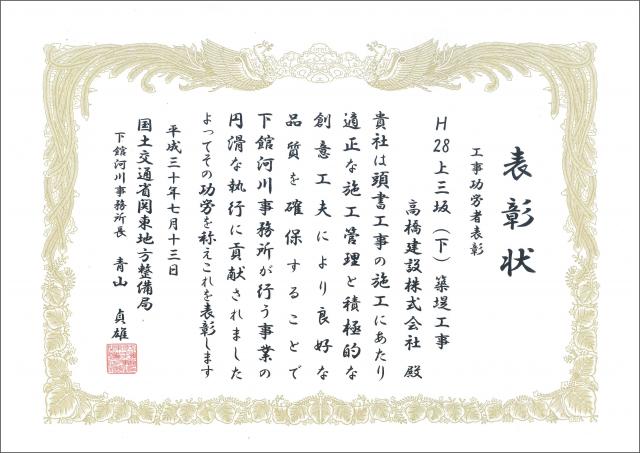 表彰状
工事功労者表彰
H28上三坂(下)築堤工事
高橋建設株式会社 殿
貴社は頭書工事の施工にあたり
適正な施工管理と積極的な
創意工夫により良好な
品質を確保することで
下館河川事務所が行う事業の
円滑な執行に貢献されました
よってその功労を称えこれを表彰します
平成三十年七月十三日
国土交通省関東地方整備局
下館河川事務所長 青山 貞雄